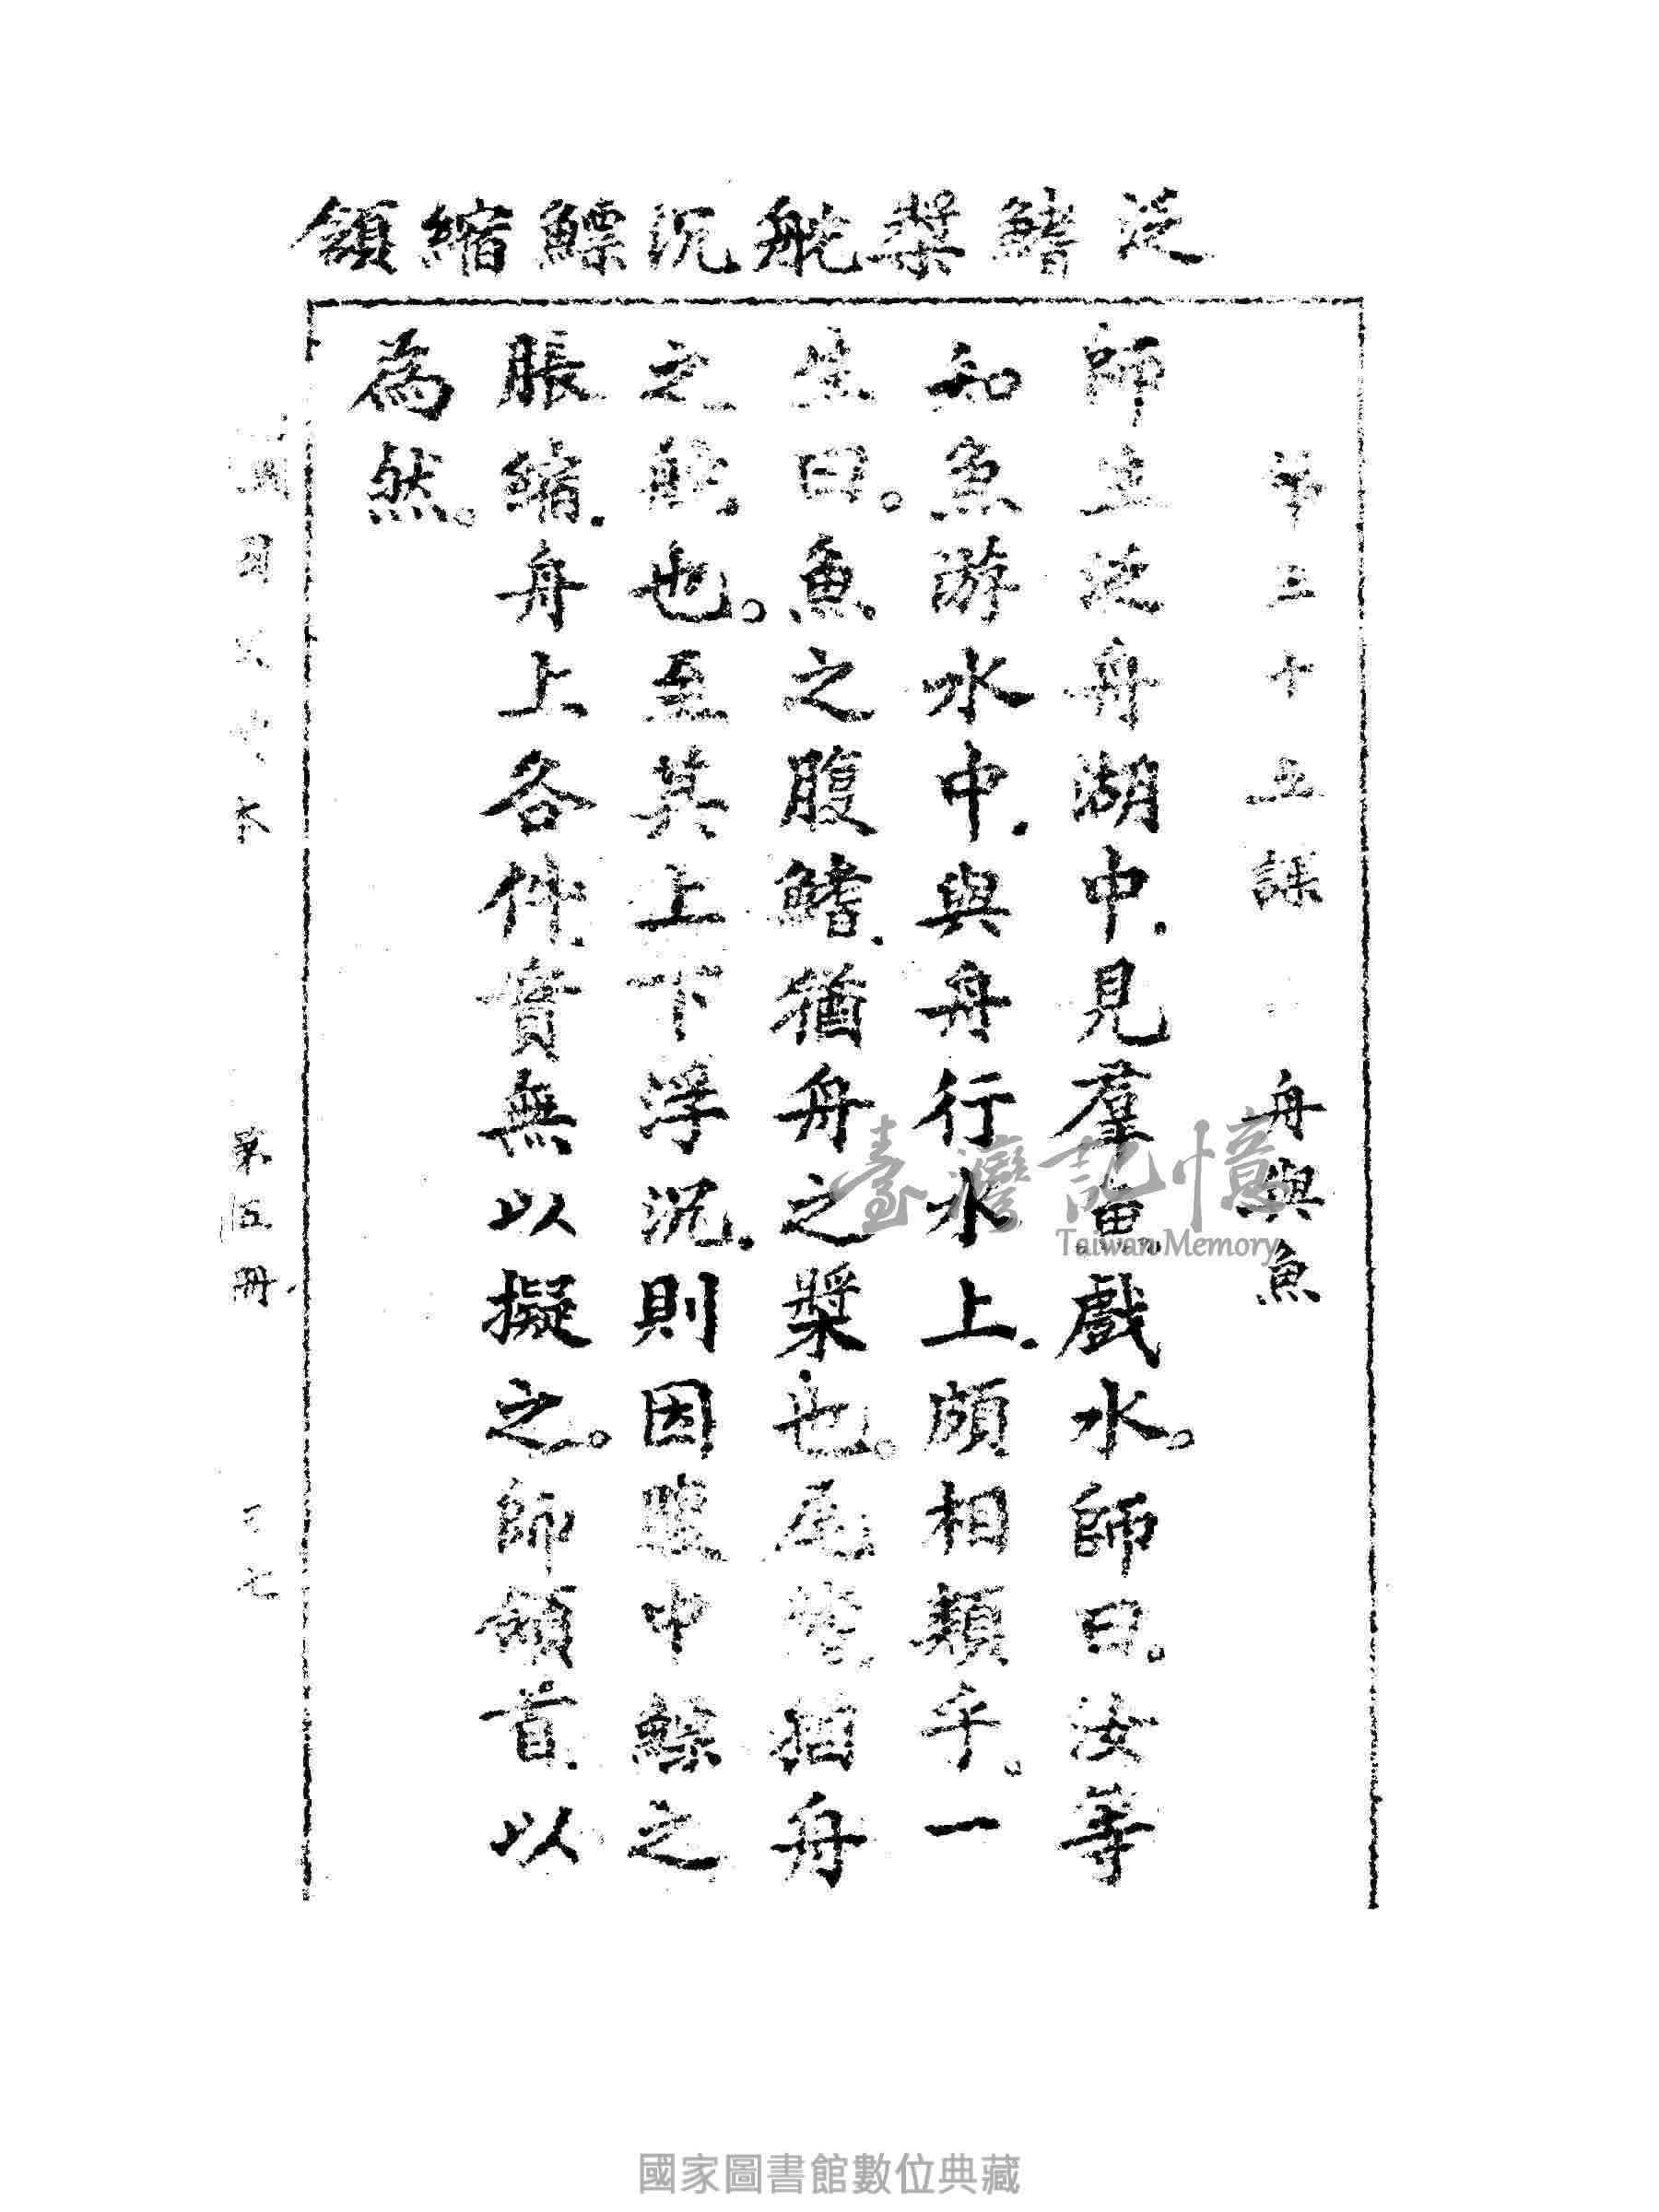 泛鰭槳舵沉鰾縮頷
第三十五課 舟與魚
師生泛舟湖中.見羣魚戲水。師曰。汝等
知魚游水中.與舟行水上.頗相類乎。一
生曰。魚之腹鰭.猶舟之槳也。尾鰭.猶舟
之舵也。至其上下浮沉.則因腹中鰾之
脹縮.舟上各件.實無以擬之。師頷首.以
為然。
第五冊
臺灣記憶
Taiwan Memory
國家圖書館數位典藏